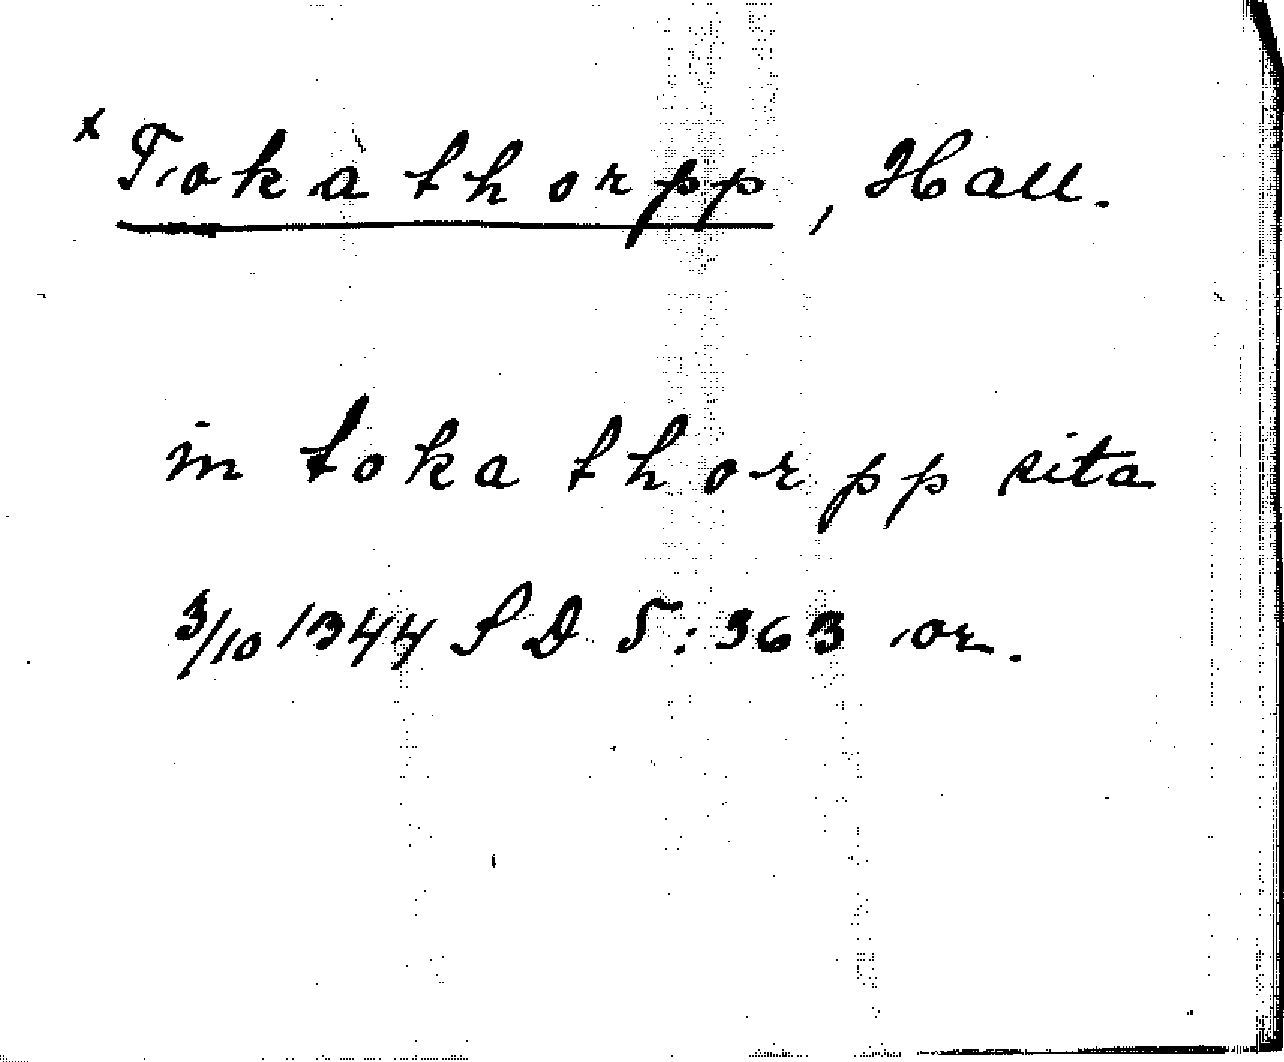 x Tokathorpp, Hall.
in tokathorpp sita
3/10 1344 SD 5:363 or.